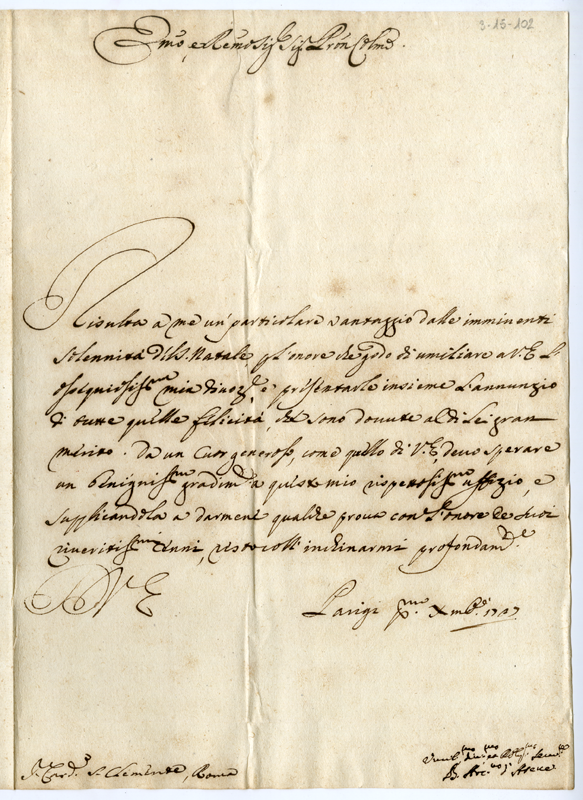 3-15-102
Emo, e Rmo Sigr Sigr Prōn Colmo.
Risulta a me un' particolare vantaggio dalle imminenti
solennità del S. Natale pl' onore che godo di umiliare a V.E. l'
osequiosissma mia divozne e presentarle insieme l'annunzio
di tutte quelle felicità, che sono dovute al di Lei gran
merito. da un Cuor generoso, come quello di V.E, devo sperare
un benignissmo gradimto a questo mio rispettosissmo uffizio, e
supplicandola a darmene qualche prova con l'onore de suoi
riveritissmi Cenni, resto coll' inchinarmi profondamte
D V E
Parigi pmo Xmbre 1727
Sr Cardl S. Clemente, Roma
B. Arcvo d' Atene